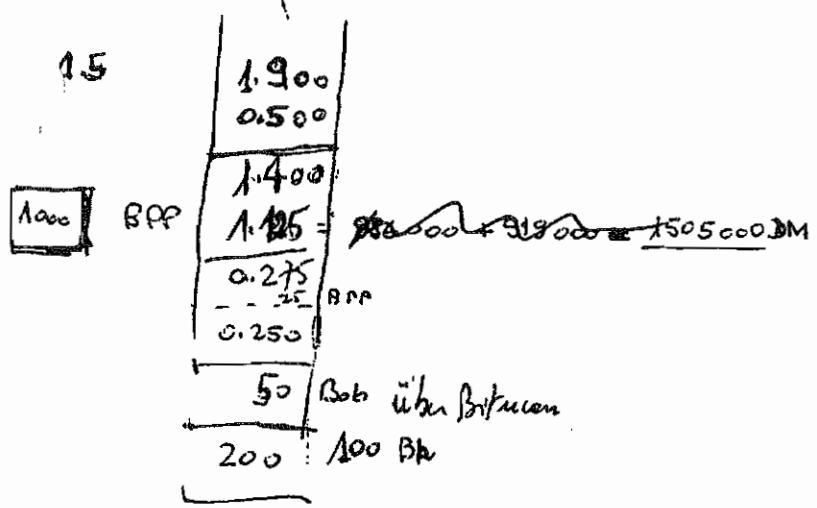 15
1.900
0.500
1.400
1000 BPP 1.125 = 000 + 919000 = 1505000 DM
0.275
25 BPP
0.250
50 Bob über
200 100 Bk